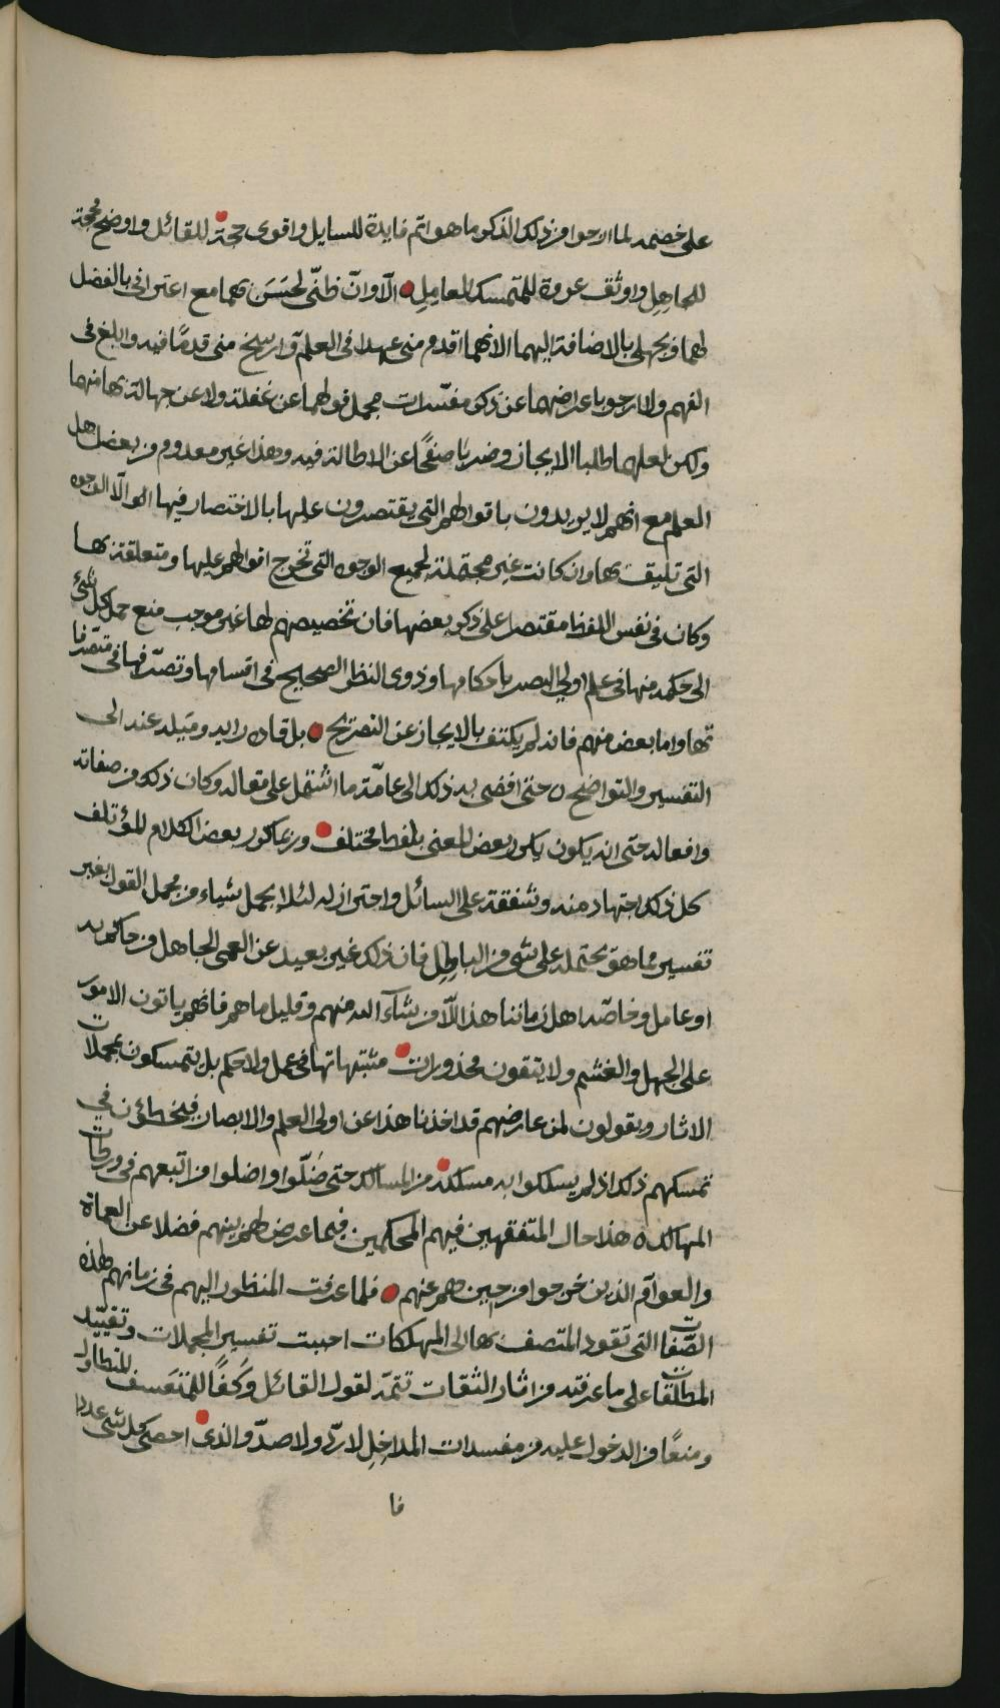 على خصمه لما ارجوا من ذلك الذكر ما هو اتم فايدة للسايل واقوى حجة للقائل واوضح محجة
للجاهل واوثق عروة للمتمسك العامل الّا وانّ ظنّي لحَسَن بهما مع اعترافي بالفضل
لهما وبجهلي بالاضافة اليهما لانهما اقدم مني عهدا في العلم وارسخ مني قدمًا فيه وابلغ في
الفهم ولا ارجو باعراضهما عن ذكر مفسّدات مجمل قولهما عن غفلة ولا عن جهالة بها منهما
ولكن لعلهما طلبا الايجاز وضربا صفحًا عن الاطالة فيه وهذا غير معدوم من بعض اهل
العلم مع انهم لا يريدون باقوالهم التي يقتصرون عليها بالاختصار فيها الّا الوجوه
التي تليق بها وان كانت غير محتملة لجميع الوجوه التي تخرج اقوالهم عليها ومتعلقة بها
وكان في نفس اللفظ مقتصرا على ذكر بعضها فان تخصيصهم لها غير موجب منع حمل كل شيء
الى حكمه منها في علم اولي البصر باحكامها وذوي النظر الصحيح في اقسامها وتصرّفها في متصرّفا
تها واما بعض منهم فانه لم يكتف بالايجاز عن التصريح بل قاده رايه وميله عنه الى
التفسير والتواضيح حتى افضى به ذلك الى عامّة ما اشتمل على مقاله وكان ذلك من صفاته
وافعاله حتى انه يكون يكرر بعض المعنى بلفظ مختلف وربما كرر بعض الكلام للمؤتلف
كل ذلك اجتهاد منه وشفقة على السائل واحتراز له لئلا يحمل شياء من مجمل القول بغير
تفسير مما هو يحتمله على شى من الباطل فان ذلك غير بعيد عن العمى الجاهل من حاكم به
او عامل وخاصّة اهل زماننا هذا الّا من شآء الله منهم وقليل ما هم فانهم ياتون الامور
على الجهل والغشم ولا يتقون محذورات مشتبهاتها في عمل ولا حكم بل يتمسكون بمجملات
الاثار ويقولون لمن عارضهم قد اخذنا هذا عن اولى العلم والابصار فيخطاؤن في
تمسكهم ذلك اذ لم يسلكوا به مسلكه من المسالك حتى ضَلّوا واضلوا من اتبعهم في ورطات
المهالك هذا حال المتفقهين فيهم المحكمين فيما عرض لهم بينهم فضلا عن العماة
والعوآم الذين خرجوا من حين هم عنهم فلما عرفت المنظور اليهم في زمانهم بهذه
الصّفات التي تقود المتصف بها الى المهلكات احببت تفسير المجملات وتقييد
المطلقات على ما عرفته من اثار الثقات تتمّة لقول القائل وكفًّا للمتعسف المتطاول
ومنعًا من الدخول عليه من مفسدات المداخل لا ردّ ولا صدّ والذي احصى كل شى عددا
فا